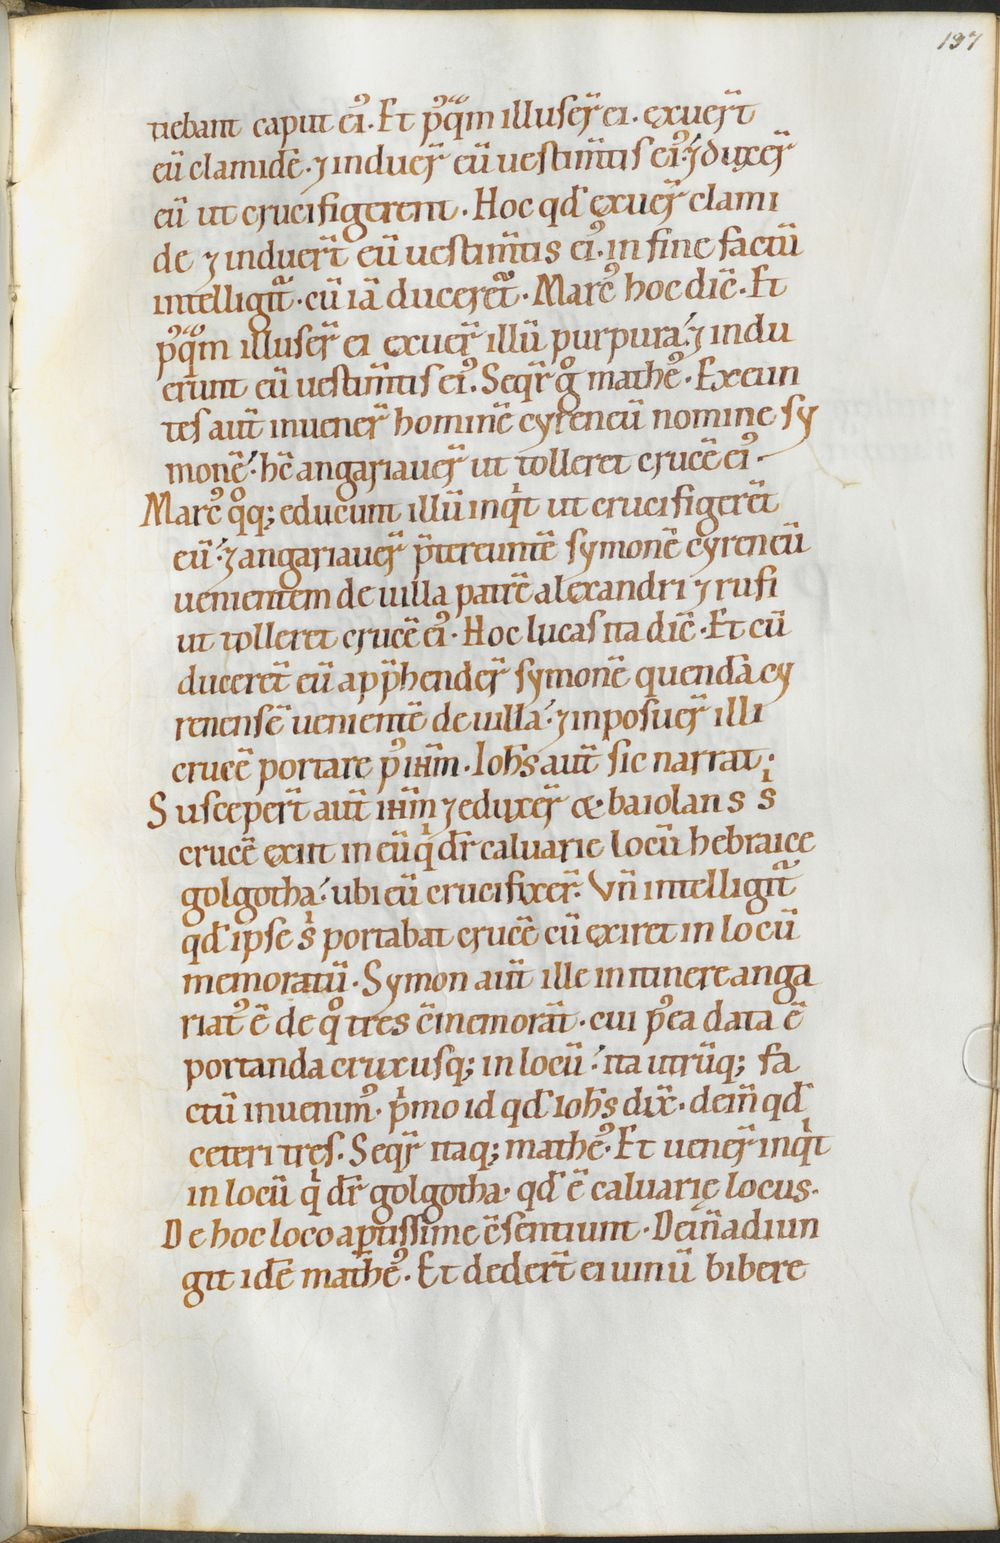 197
tiebant caput ei᾽. Et p᾽q̃m illuser̃ ei. exuer̃t
eũ clamidẽ. ⁊ induer̃ eũ uestim̃tis ei᾽.⁊ duxer̃
eũ ut crucifigerent. Hoc qđ exuer̃ clami
de ⁊ induer̃t eũ uestim̃tis ei᾽. in fine factũ
intelligit̃. cũ iã duceret̃. Marc᾽ hoc dic̃. Et
p᾽q̃m illuser̃ ei exuer̃ illũ purpura.⁊ indu
erunt eũ uestim̃tis ei᾽. Seqr̃ g° mathe᾽. Exeun
tes aut̃ inuener̃ hominẽ cyreneũ nomine sy
monẽ. hc̃ angariauer̃ ut tolleret crucẽ ei᾽.
Marc᾽ q°q; educunt illũ inqͥt ut crucifigerẽt
eũ.⁊ angariauer̃ p̃tereuntẽ symonẽ cyreneũ
uenientem de uilla patrẽ alexandri ⁊ rufi
ut tolleret crucẽ ei᾽. Hoc lucas ita dic̃. Et cũ
ducerẽt eũ app̃hender̃ symonẽ quendã cy
renensẽ uenientẽ de uilla.⁊ inposuer̃ illi
crucẽ portare p᾽ ih̃m. Ioh̃s aut̃ sic narrat.
Susceper̃t aut̃ ih̃m ⁊ eduxer̃ &. baiolans sͥ
crucẽ exiit in eũ qͥ dr̃ caluarie locũ hebraice
golgotha. ubi eũ crucifixer̃. Vñ intelligit̃
qđ ipse sͥ portabat crucẽ cũ exiret in locũ
memoratũ. Symon aut̃ ille in itinere anga
riat᾽ ẽ de q° tres c̃memorãt. cui p᾽ea data ẽ
portanda crux usq; in locũ. ita utrũq; fa
ctũ inuenim᾽. pͥmo id qđ Ioh̃s dix̃. deiñ qđ
ceteri tres. Seqr̃ itaq; mathe᾽. Et uener̃ inqͥt
in locũ qͥ dr̃ golgotha. qđ ẽ caluarię locus.
De hoc loco apertissime c̃sentiunt. Deiñ adiun
git idẽ mathe᾽. Et deder̃t ei uinũ bibere